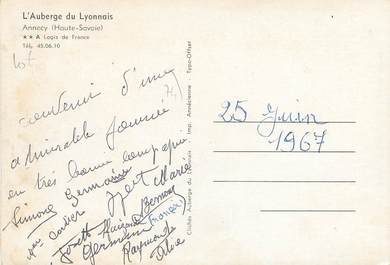 L'Auberge du Lyonnais
Annecy (Haute-Savoie)
★★ A Logis de France
Tél. 45.06.10
lot
souvenir d'une
admirable journée
en très bonne compagnie
Simone Germaine
Yvet Marie
Josette
Germaine
Raymonde
25 Juin
1967
Clichés Auberge du Lyonnais Imp. Annécienne Typo-Offset